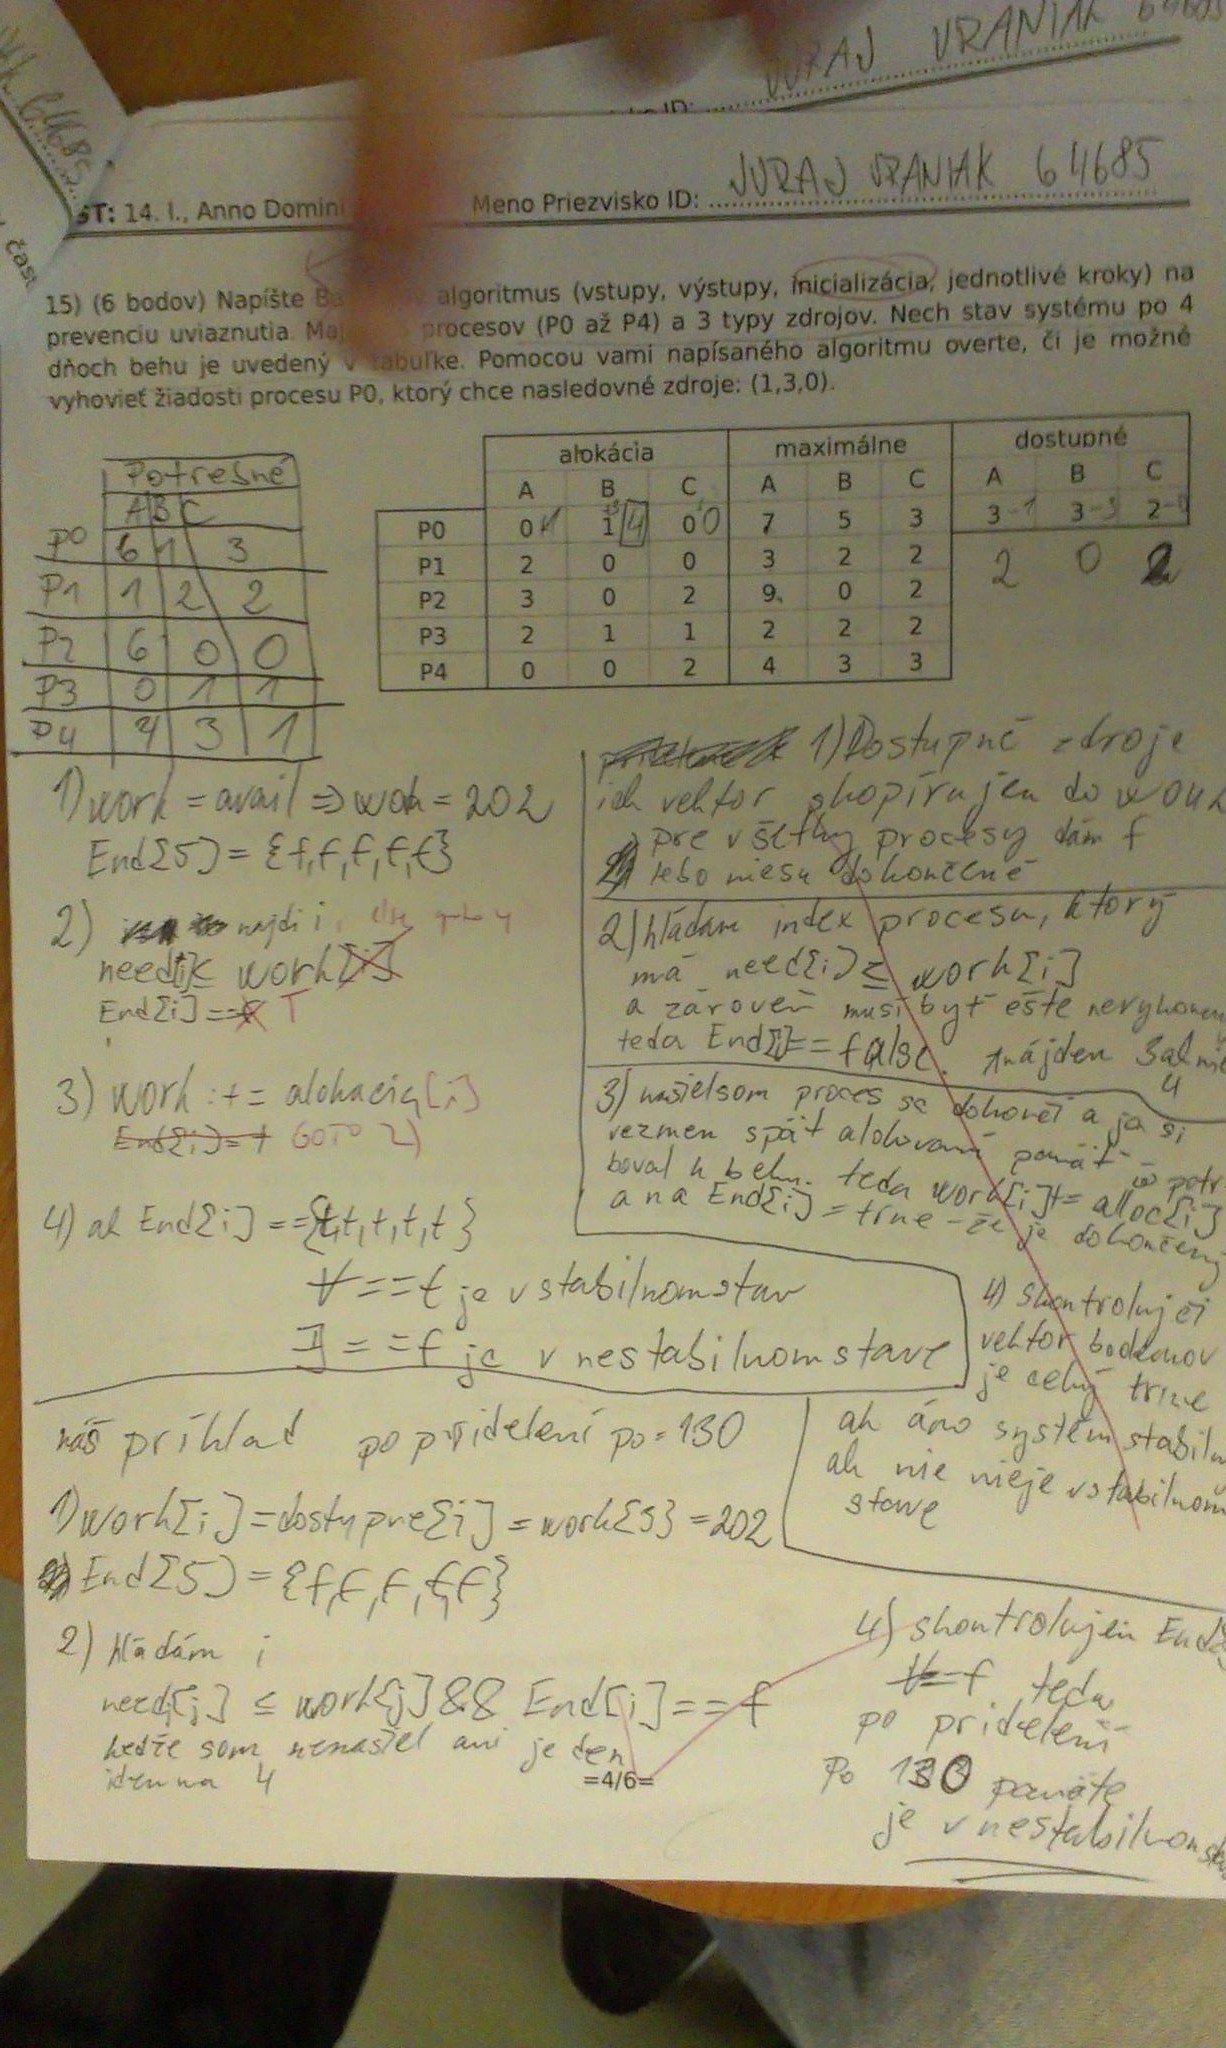 JURAJ VRANIAK 64685
64685
čast
ST: 14. I., Anno Domini
Meno Priezvisko ID: JURAJ VRANIAK 64685
15) (6 bodov) Napíšte algoritmus (vstupy, výstupy, inicializácia, jednotlivé kroky) na
prevenciu uviaznutia. procesov (P0 až P4) a 3 typy zdrojov. Nech stav systému po 4
dňoch behu je uvedený v tabuľke. Pomocou vami napísaného algoritmu overte, či je možné
vyhovieť žiadosti procesu P0, ktorý chce nasledovné zdroje: (1,3,0).
alokácia maximálne dostupné
A B C A B C A B C
P0 0 1 1 4 0 0 7 5 3 3-1 3-3 2-0
P1 2 0 0 3 2 2 2 0 2
P2 3 0 2 9 0 2
P3 2 1 1 2 2 2
P4 0 0 2 4 3 3
Potrebné
A B C
P0 6 1 3
P1 1 2 2
P2 6 0 0
P3 0 1 1
P4 4 3 1
1) work = avail => work = 202
End[5] = {f,f,f,f,f}
2) najdi i, else goto 4
need[i] ≤ work[i]
End[i] == f T
3) work :+= alokacia[i]
End[i] = t GOTO 2)
4) ak End[i] == {t,t,t,t,t}
∀ == t je v stabilnom stav
∃ == f je v nestabilnom stave
1) Dostupné zdroje
ich vektor skopírujem do work
pre všetky procesy dám f
lebo niesu dokončené
2) hľadam index procesu, ktorý
má need[i] ≤ work[i]
a zároveň musí byť ešte
teda End[i] == false.
3) našiel som proces sa dokončí a ja si
vezmem späť alokovanú pamäť
boval k behu. teda work[i] += alloc[i]
a na End[i] = true - že je dokončený
4) skontroluj či
vektor
je celý true
ak áno systém
ak nie nieje v stabilnom
stave
náš príklad po pridelení po = 130
1) work[i] = dostupne[i] = work[5] = 202
End[5] = {f,f,f,f,f}
2) hľadám i
need[j] ≤ work[j] && End[i] == f
keďže som nenašiel ani jeden
idem na 4
=4/6=
4) skontrolujem
∀ == f teda
po pridelení
Po 130 pamäte
je v